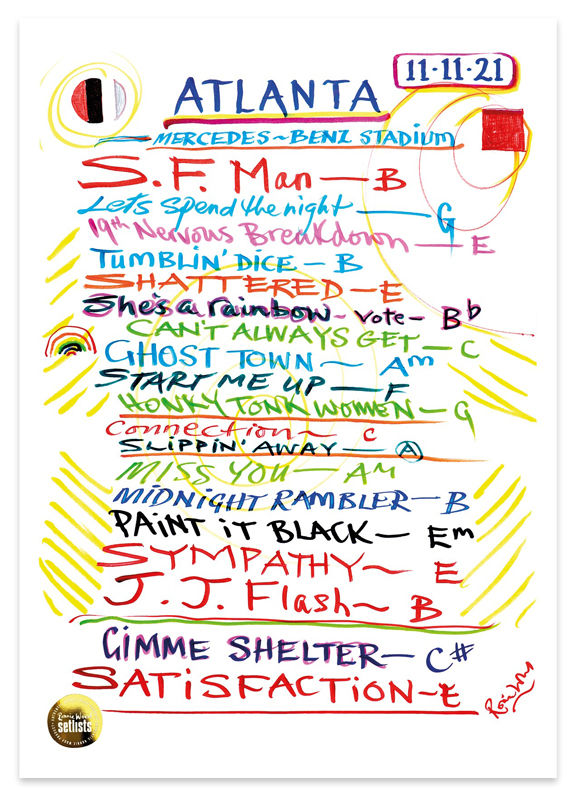 11·11·21
ATLANTA
MERCEDES~BENZ STADIUM
S.F. Man — B
Let's spend the night — G
19th Nervous Breakdown — E
TUMBLIN' DICE — B
SHATTERED — E
She's a rainbow - vote - Bb
CAN'T ALWAYS GET — C
GHOST TOWN ~ Am
START ME UP — F
HONKY TONK WOMEN — G
Connection ~ C
SLIPPIN' AWAY — A
MISS YOU — AM
MIDNIGHT RAMBLER — B
PAINT iT BLACK — Em
SYMPATHY ~ E
J.J. Flash ~ B
GIMME SHELTER — C#
SATiSFACTiON ~ E
Ronnie Wood
setlists